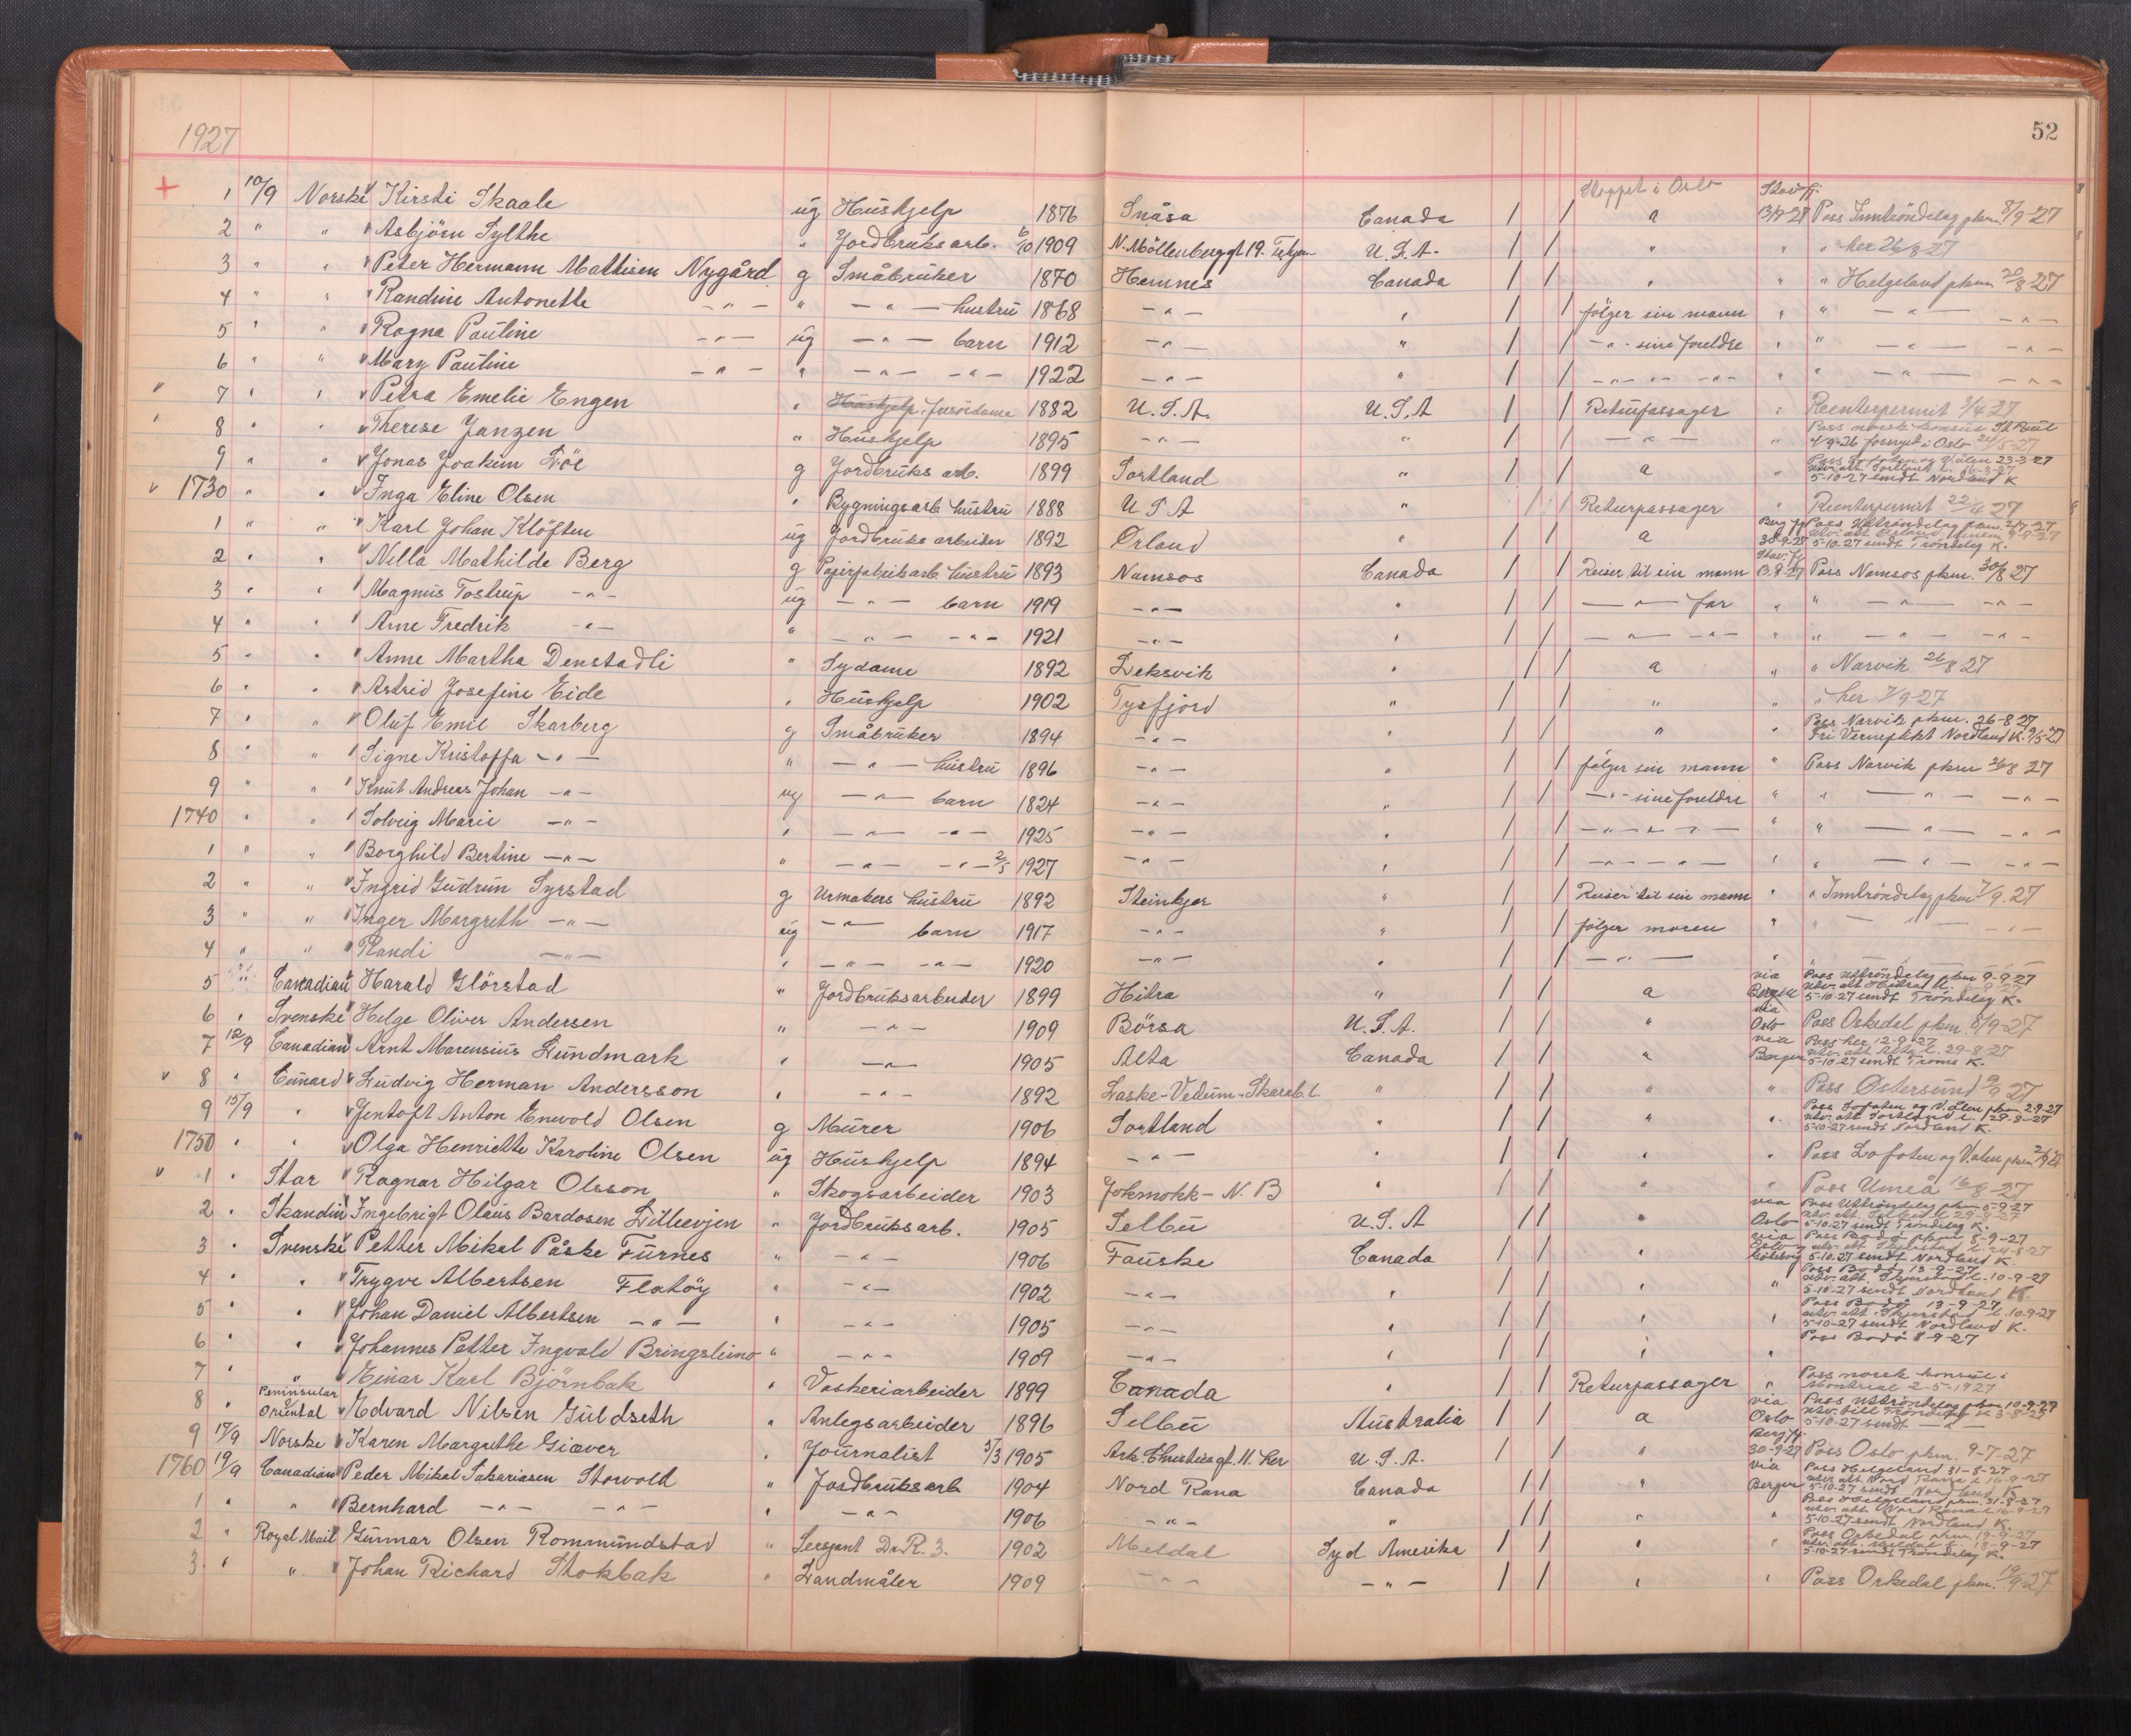 52
1927
Stoppet i Oslo Stav.fj.
1 10/9 Norske Kirsti Skaale ug Hushjelp 1876 Snåsa Canada / / a 13/9-27 Pass Inntröndelag pkm. 8/9-27
2 " " Asbjörn Sylthe " Jordbruksarb. 6/10 1909 N. Möllenberggt 19. U.S.A. / / " " " her 26/8 27
3 " " Peter Hermann Mathisen Nygård g Småbruker 1870 Hemnes Canada / / " " " Helgeland pkm 20/8-27
4 " " Randine Antonette -"- " -"- hustru 1868 -"- " / / fölger sin mann " " -"- -"-
5 " " Ragna Pauline -"- ug -"- barn 1912 -"- " / / -"- sine foreldre " " -"- -"-
6 " " Mary Pauline -"- " -"- -"- 1922 -"- " / / -"- -"- -"- " " -"- -"-
7 " " Petra Emelie Engen " Hushjelp, frisördame 1882 U.S.A. U.S.A / / Returpassager " Reenterpermit 3/4 27
8 " " Therese Janzen " Hushjelp 1895 -"- " / / -"- " Pass norsk konsul St Paul
4/9-26 fornyet i Oslo 24/5-27
9 " " Jonas Joakim Löe g Jordbruks arb. 1899 Sortland " / / a " Pass Lofoten og V.ålen 23-3-27
utv. att Sortland L.
5-10-27 sendt Nordland K
1730 " " Inga Eline Olsen " Bygningsarb hustru 1888 U S A " / / Returpassager " Reenterpermit 22/4 27
1 " " Karl Johan Klöften ug Jordbruks arbeider 1892 Örland " / / a Berg.fj. 30-9-27 Pass Uttröndelag pkm. 2/9-27
5-10-27 sendt Tröndelag K.
2 " " Nella Mathilde Berg g Papirfabrikarb hustru 1893 Namsos Canada / / Reiser til sin mann Stav.fj. 13.9-27 Pass Namsos pkm. 30/8 27
3 " " Magnus Tostrup -"- ug -"- barn 1919 -"- " / / -"- far " " -"- -"-
4 " " Arne Fredrik -"- " -"- -"- 1921 -"- " / / -"- -"- " " -"- -"-
5 " " Anne Martha Denstadli " Sydame 1892 Leksvik " / / a " " Narvik 26/8 27
6 " " Astrid Josefine Eide " Hushjelp 1902 Tysfjord " / / " " " her 7/9-27
7 " " Oluf Emil Skarberg g Småbruker 1894 -"- " / / " " Pass Narvik pkm. 26-8 27
Fri Vernepkkt Nordland K. 9/5-27
8 " " Signe Kristoffa -"- " -"- hustru 1896 -"- " / / fölger sin mann " Pass Narvik pkm 26/8 27
9 " " Knut Andreas Johan -"- ug -"- barn 1824 -"- " / / -"- sine foreldre " " -"- -"-
1740 " " Solveig Marie -"- " -"- -"- 1925 -"- " / / -"- -"- " " -"- -"-
1 " " Borghild Bertine -"- " -"- -"- 2/5 1927 -"- " / / -"- -"- " " -"- -"-
2 " " Ingrid Gudrun Syrstad g Urmakers hustru 1892 Steinkjer " / / Reiser til sin mann " " Inntröndelag pkm 7/9-27
3 " " Inger Margreth -"- ug -"- barn 1917 -"- " / / fölger moren " " -"- -"-
4 " " Randi -"- " -"- -"- 1920 -"- " / / -"- " " -"- -"-
5 " Canadian Harald Glörstad " Jordbruksarbeider 1899 Hitra " / / a via Bergen Pass Uttröndelag pkm 9-9-27
utv. att Hitra L.
5-10-27 sendt Tröndelag K.
6 " Svenske Helge Oliver Andersen " -"- 1909 Börsa U.S.A. / / " via Oslo Pass Orkedal pkm. 8/9-27
7 12/9 Canadian Arnt Marensius Lundmark " -"- 1905 Alta Canada / / a via Bergen Pass her, 12-9-27
utv. att Alta L. 29-8-27
5-10-27 sendt Troms K.
8 " Cunard Ludvig Herman Andersson " -"- 1892 Laske-Vedum-Skarab. L. " / / " " Pass Östersund 9/9 27
9 15/9 " Jentoft Anton Enevold Olsen g Murer 1906 Sortland " / / " " Pass Lofoten og V.ålen pkm 2-9-27
utv. att Sortland L. 29-8-27
5-10-27 sendt Nordland K.
1750 " " Olga Henriette Karoline Olsen ug Hushjelp 1894 -"- " / / " " Pass Lofoten og V.ålen pkm 2/9 27
1 " Star Ragnar Hilgar Olsson " Skogsarbeider 1903 Jokmokk - N. B " / / " " Pass Umeå 16/8-27
2 " Skandin Ingebrigt Olaus Bardosen Lillievjen " Jordbruksarb. 1905 Selbu U.S.A / / " via Oslo Pass Uttröndelag pkm 5-9-27
utv. att. Selbu L 29-8-27
5-10-27 sendt Tröndelag K.
3 " Svenske Petter Mikal Påske Furnes " -"- 1906 Fauske Canada / / " via Oslo og Göteborg Pass Bodö pkm 8-9-27
utv. att Skjerstad L. 24-8-27
5.10.27 sendt Nordland K
4 " " Trygve Albertsen Flatöy " -"- 1902 -"- " / / " " Pass Bodö 13-9-27
utv. att. Skjerstad L. 10-9-27
5-10-27 sendt Nordland K.
5 " " Johan Daniel Albertsen -"- " -"- 1905 -"- " / / " " Pass Bodö 13-9-27
utv. att. Skjerstad L. 10.9-27
5-10-27 sendt Nordland K.
6 " " Johannes Petter Ingvald Bringsleimo " -"- 1909 -"- " / / " " Pass Bodö 8-9-27
7 " " Einar Karl Björnbak " Vaskeriarbeider 1899 Canada " / / Returpassager " Pass norsk konsul i
Montreal 2-5-1927
8 " Peninsular & Oriental Edvard Nilsen Guldseth " Anlegsarbeider 1896 Selbu Australia / / a via Oslo Pass Uttröndelag pkm 10-9-27
5-10-27 sendt -"-
9 17/9 Norske Karen Margrethe Giæver " Journalist 3/3 1905 Ark. Christiesgt. 11. her U.S.A. / / " Berg.fj. 30-9-27 Pass Oslo pkm. 9-7-27
1760 19/9 Canadian Peder Mikal Sakariasen Storvold " Jordbruksarb 1904 Nord Rana Canada / / " via Bergen Pass Helgeland 31-8-27
utv. att Nord Rana L 16-9-27
5-10-27 sendt Nordland K
1 " " Bernhard -"- -"- " -"- 1906 -"- " / / " " Pass Helgeland pkm. 31-8-27
utv. att Nord Rana L 16-9-27
5-10-27 sendt Nordland K.
2 " Royal Mail Gunnar Olsen Rommundstad " Sersjant D.R. 3. 1902 Meldal Syd Amerika / / " " Pass Orkedal pkm. 19-9-27
utv. att. Meldal L. 18-9-27
5-10-27 sendt Tröndelag K.
3 " " Johan Richard Stokbak " Landmåler 1909 -"- -"- / / " " Pass Orkedal pkm. 19/9-27